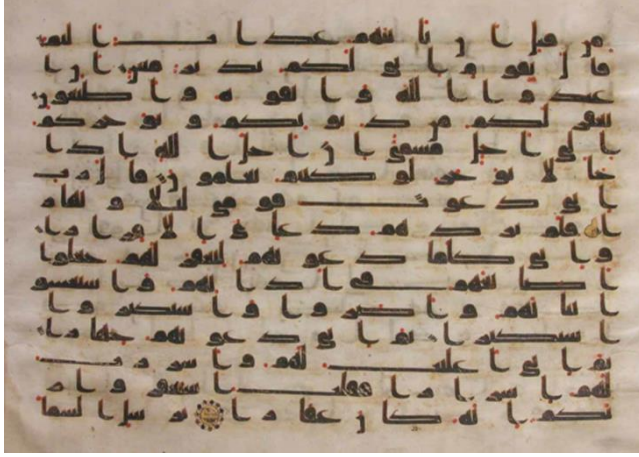 من قبل ان ياتيهم عذاب اليم
قال يقوم اني لكم نذير مبين ان ا
عبدوا الله واتقوه واطيعون
يغفر لكم من ذنوبكم ويوخركم
الى اجل مسمى ان اجل الله اذا
جا لا يوخر لو كنتم تعلمون قال رب
اني دعوت قومي ليلا ونها
را فلم يزدهم دعاي الا فرارا
واني كلما دعوتهم لتغفر لهم جعلوا
اصبعهم في اذانهم واستغشو
ا ثيابهم واصروا واستكبروا
استكبارا ثم اني دعوتهم جهارا
ثم اني اعلنت لهم واسررت
لهم اسرارا فقلت استغفروا ر
بكم انه كان غفارا يرسل السما